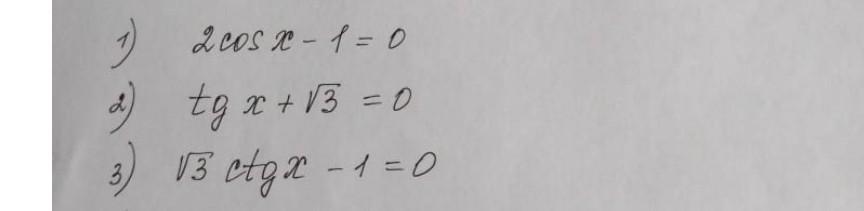 1) 2cos x - 1 = 0
2) tg x + √3 = 0
3) √3 ctgx - 1 = 0